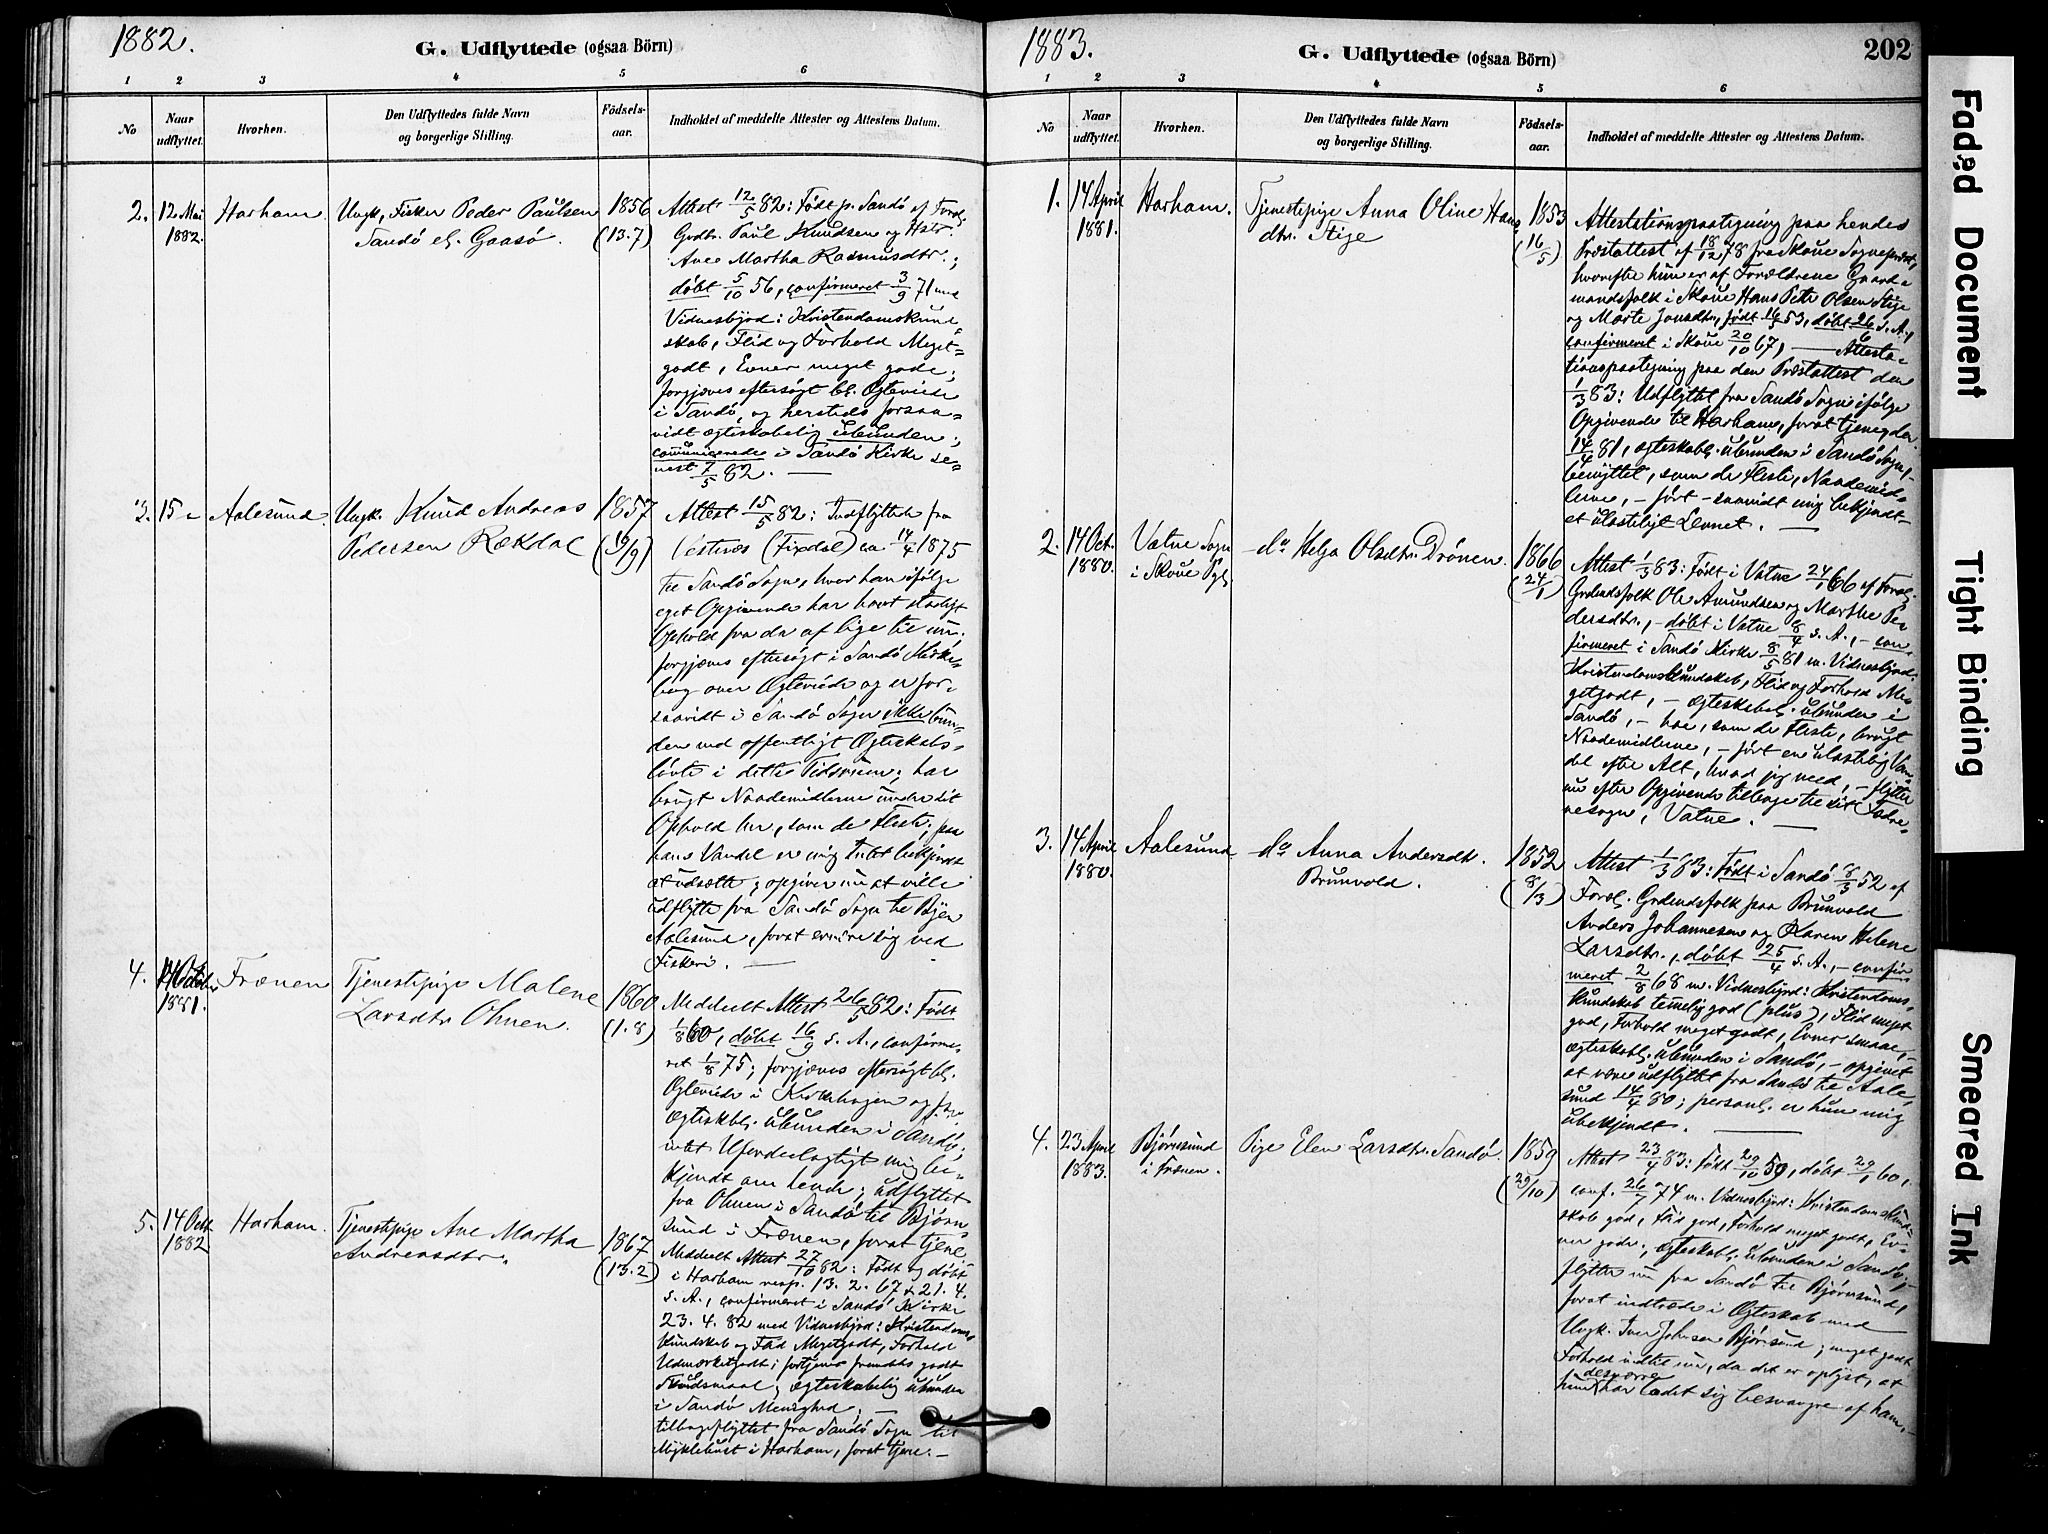 1882.
G. Udflyttede (ogsaa Börn)
1 2 3 4 5 6
No
Naar udflyttet.
Hvorhen.
Den Udflyttedes fulde Navn og borgerlige Stilling.
Födsels-aar.
Indholdet af meddelte Attester og Attestens Datum.
2. 12 Mai 1882.
Harham
Ungk. Fisker Peder Paulsen
Sandö el. Gaasö.
1856
(13.7)
Attest 12/5 82: Födt p. Sandö af Foræl.
Grdbr. Paul Knudsen og Hstr.
Ane Martha Rasmusdtr.;
döbt 5/10 56, confirmeret 3/9 71 med
Vidnesbyrd: Kristendomskund-
skab, Flid og Forhold Meget-
godt, Evner meget gode;
forgjæves eftersögt bl. Ægteviede
i Sandö, og hersteds forsaa-
vidt ægteskabelig ubunden;
communicerede i Sandö Kirke se-
nest 7/5 82. —
3. 15 "
Aalesund
Ungk. Knud Andreas
Pedersen Rækdal
1857
(19/9)
Attest 15/5 82: Indflyttede fra
Vestnæs (Fixdal) ca 14/4 1875
til Sandö Sogn, hvor han ifölge
eget Opgivende har havt stadigt
Ophold fra da af lige til nu.
forgjæves eftersögt i Sandö Kirke-
bog over Ægteviede og er for-
saavidt i Sandö Sogn ikke bun-
den ved offentligt Ægteskabs-
löfte i dette Tidsrum; har
brugt Naademidlerne under sit
Ophold her, som de Fleste; paa
hans Vandel er mig Intet bekjendt
at udsætte; opgiver nu at ville
udflytte fra Sandö Sogn til Byen
Aalesund, forat ernære sig ved
Fiskeri. —
4. 14 October 1881.
Frænen
Tjenestepige Malene
Larsdtr. Ohnen.
1860
(1.8)
Meddeelt Attest 26/5 82: Födt
1/8 60, döbt 16/9 s. A., confirme-
ret 1/8 75; forgjæves eftersögt bl.
Ægteviede i Kirkebogen og
Ægteskbl. ubunden i Sandö;
intet Ufordeelagtigt mig be-
kjendt om hende; udflyttet
fra Ohnen i Sandö til Björn-
sund i Frænen, forat tjene.
5. 14 Octb. 1882
Harham.
Tjenestepige Ane Martha
Andreasdtr.
1867
(13.2)
Meddeelt Attest 27/10 82: Födt og döbt
i Harham resp. 13. 2. 67 & 21. 4.
s. A., confirmeret i Sandö Kirke
23. 4. 82 med Vidnesbyrd: Kristendoms-
kundskab og Flid Megetgodt, Forhold
Udmærketgodt; fortjener fremdeles godt
Skudsmaal; ægteskabelig ubunden
i Sandö Menighed; —
tilbageflyttet fra Sandö Sogn til
Myklebust i Harham, forat tjene. —
1883.
G. Udflyttede (ogsaa Börn)
202
1 2 3 4 5 6
No
Naar udflyttet.
Hvorhen.
Den Udflyttedes fulde Navn og borgerlige Stilling.
Födsels-aar.
Indholdet af meddelte Attester og Attestens Datum.
1. 14 April 1881.
Harham.
Tjenestepige Anna Oline Hans
dtr. Stige
1853
(16/5)
Attestationspaategning paa hendes
Præstattest af 18/12 78 fra Skoue Sognepræst,
hvorefter hun er af Forældrene Gaard-
mandsfolk i Skoue Hans Petr Olsen Stige
og Marte Jonsdtr., födt 16/5 53, döbt 26/6 s. A.,
confirmeret i Skoue 20/10 67, — Attesta-
tionspaategning paa den Præstattest den
1/3 83: Udflyttet fra Sandö Sogn ifölge
Opgivende til Harham, forat tjene, der
14/4 81, ægteskabl. ubunden i Sandö Sogn, —
benyttet, som de Fleste, Naademid-
lerne, — fört — saavidt mig bekjendt —
et ulasteligt Levnet. —
2. 14 Oct. 1880.
Vatne Sogn
i Skoue Pgl.
do Helga Olsdtr. Drönen.
1866
(24/1)
Attest 1/3 83: Födt i Vatne 24/1 66 af Foræl.
Grdmdsfolk Ole Amundsen og Marthe Pe-
dersdtr., — döbt i Vatne 8/4 s. A., — con-
firmeret i Sandö Kirke 8/5 81 m. Vidnesbyrd:
Kristendomskundskab, Flid og Forhold Me-
getgodt, — ægteskabel. ubunden i
Sandö, — har, som de Fleste, brugt
Naademidlerne, — fört en ulastelig Van-
del efter Alt, hvad jeg veed, — flytter
nu efter Opgivende tilbage til sit Födre-
nesogn, Vatne. —
3. 14 April 1880.
Aalesund
do Anna Andersdtr.
Brunvold.
1852
(8/3)
Attest 1/3 83: Födt i Sandö 8/3 52 af
Foræl. Grdmdsfolk paa Brunvold
Anders Johannesen og Karen Helene
Larsdtr., döbt 25/4 s. A., — confir-
meret 2/8 68 m. Vidnesbyrd: Kristendoms-
kundskab temelig god (plus), Flid meget
god, Forhold meget godt, Evner smaae, —
ægteskabl. ubunden i Sandö, — opgivet
at være udflyttet fra Sandö til Aale-
sund 14/4 80; personl. er hun mig
ubekjendt. —
4. 23 April 1883.
Björnsund
i Frænen.
Pige Elen Larsdtr. Sandö.
1859
(29/10)
Attest 23/4 83: Födt 29/10 59, döbt 29/1 60,
conf. 26/7 74 m. Vidnesbyrd: Kristendomskund-
skab god, Flid god, Forhold meget godt, Ev-
ner gode; ægteskabl. ubunden i Sandö,
flytter nu fra Sandö til Björnsund,
forat indtræde i Ægteskab med
Ungk. Iver Johnsen Björnsund; meget godt
Forhold indtil nu, da det er oplyst, at
hun desværre har ladet sig besvangre af ham. —
Faded Document
Tight Binding
Smeared Ink